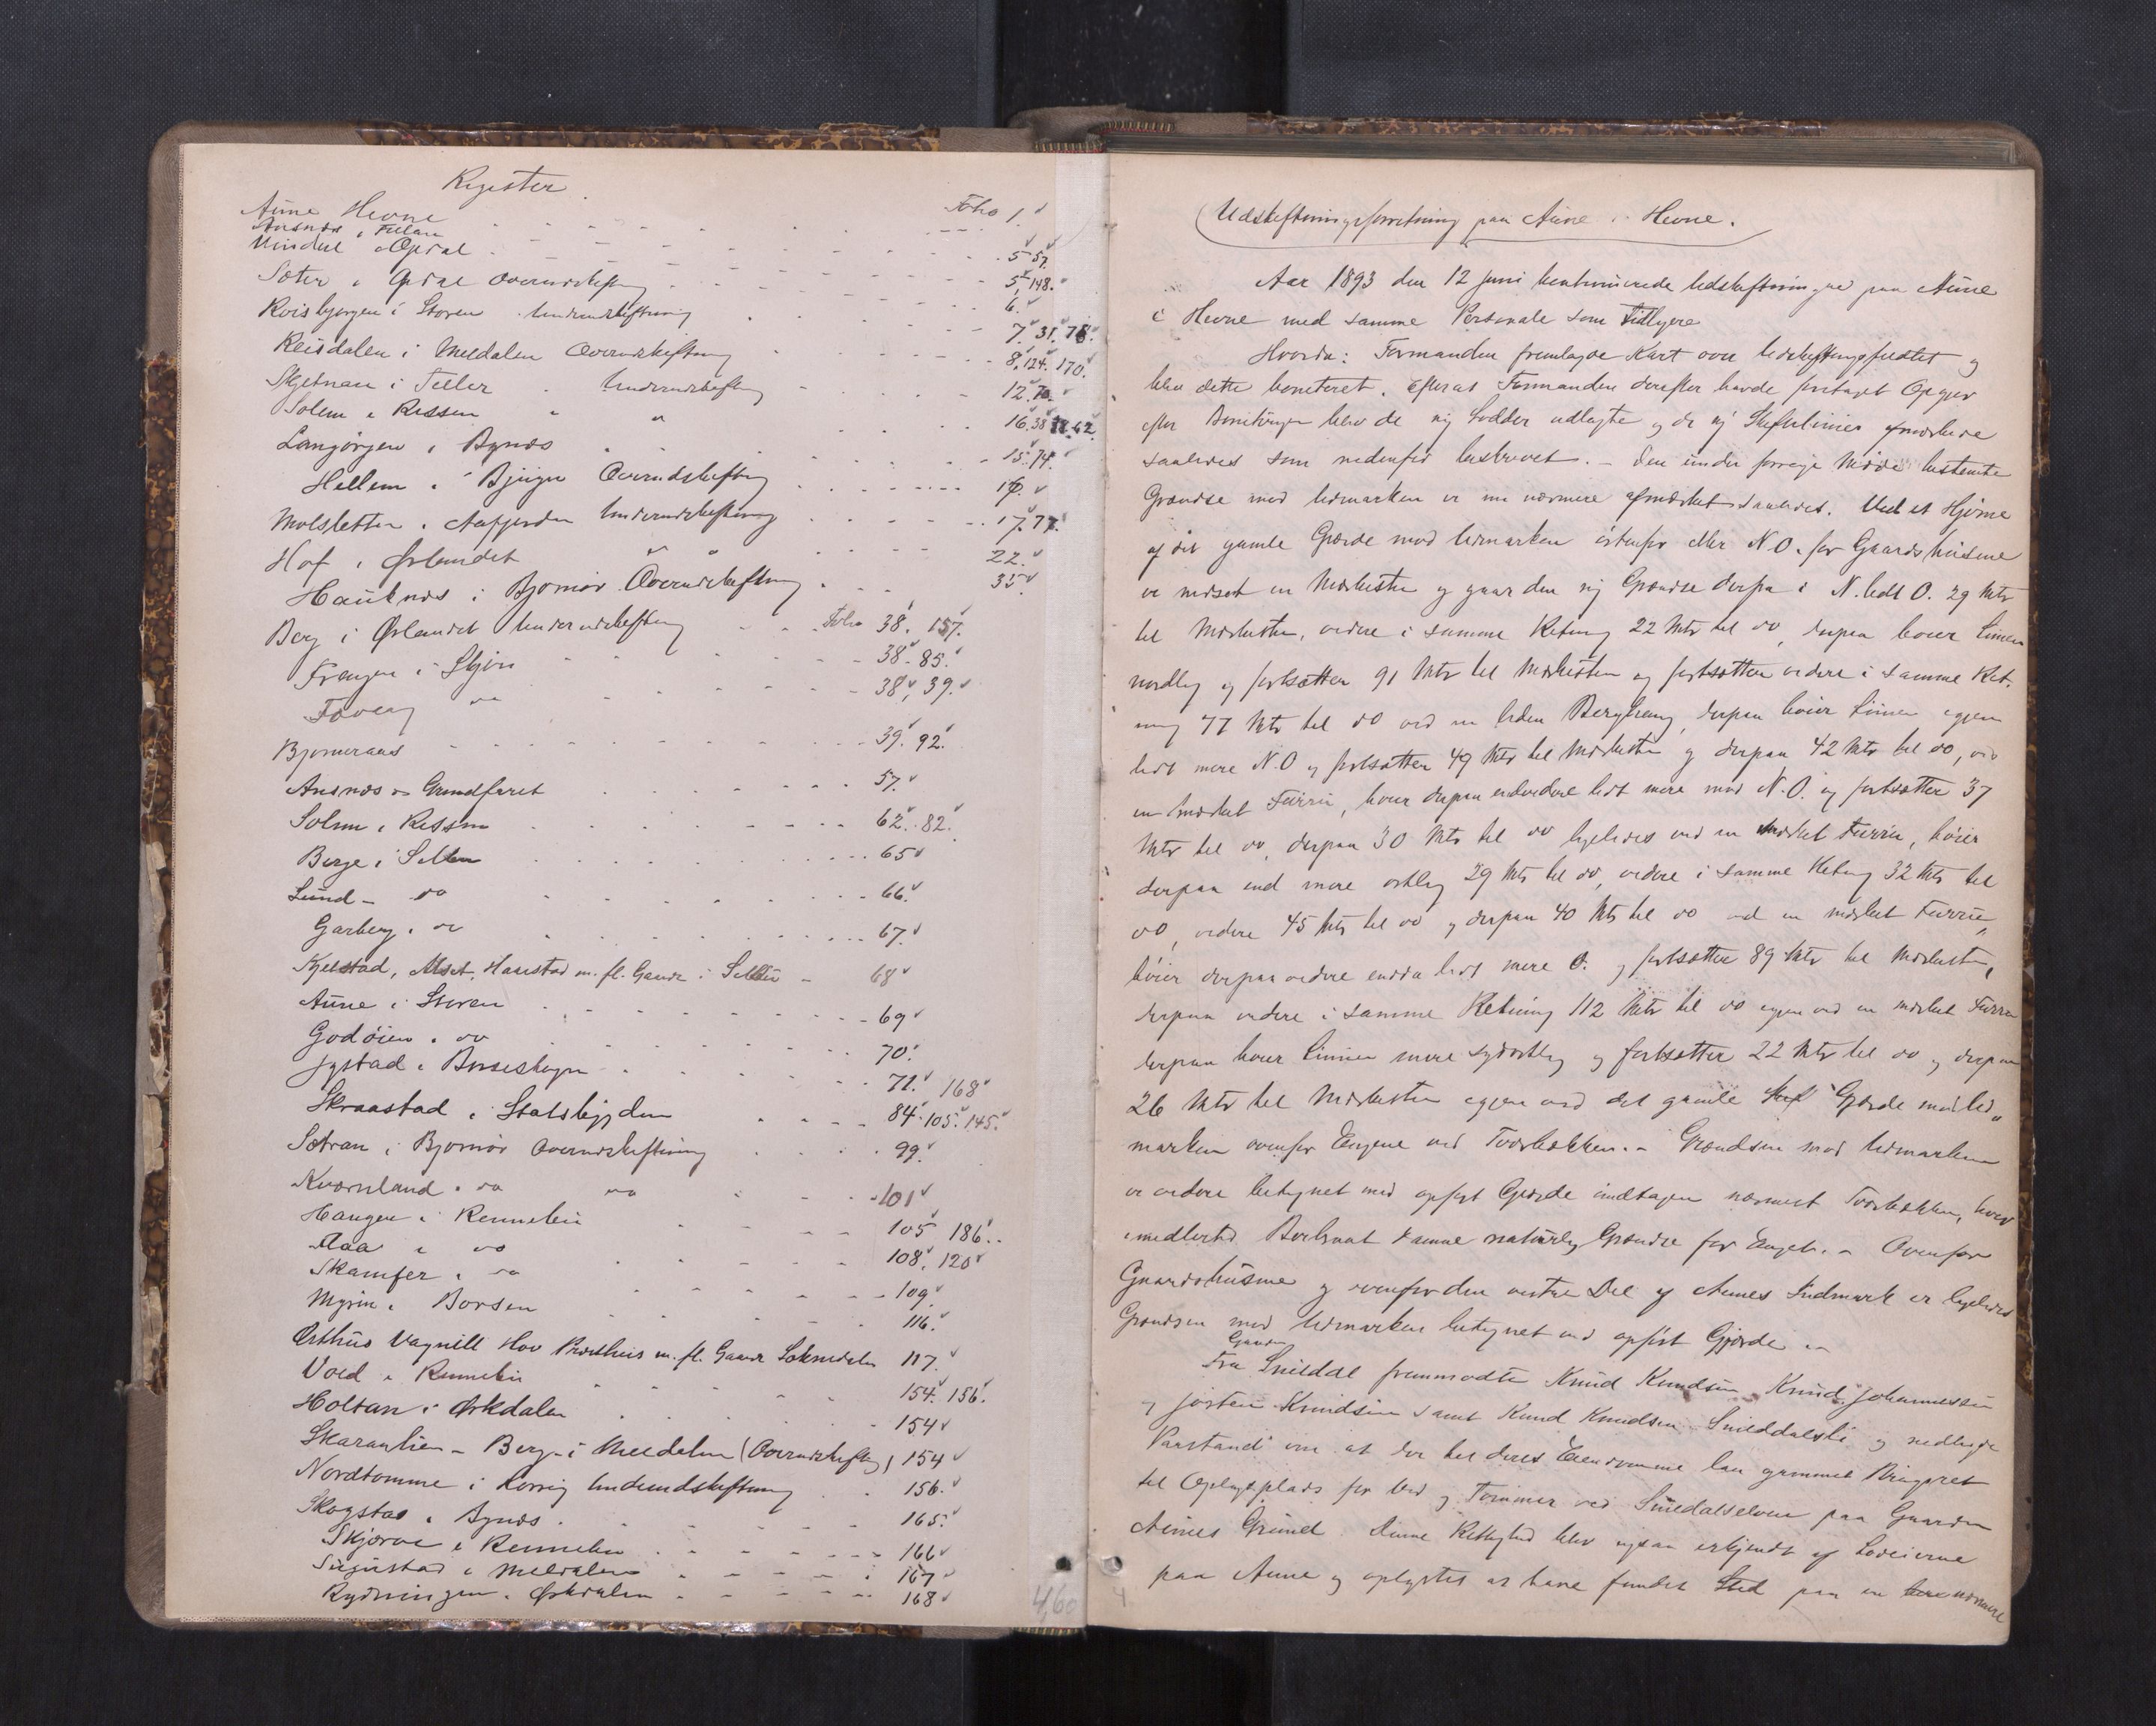 Register
Aune Hevne Folio 1.
Ausnæs i Fillan
Vindal Opdal 5. 57.
Sæter i Opdal Overudskiftng 5, 148.
Kvisbjørgen i Støren Underudskiftning 6.
Reisdalen i Meldalen Overudskiftning 7. 31. 78.
Skjetnan i Tiller Underudskiftng 8, 124. 170.
Solem i Rissen " " 12. 70.
Langørgen i Bynæs 16. 38
Hellem i Bjugn Overudskiftng 15. 74.
Molsletten i Aafjorden Underudskiftning 16.
Hof i Ørlandet " " 17. 77.
Hauknæs i Bjørnør Overudskiftng 22.
35.
Berg i Ørlandet Underudskiftng Folio 38. 157.
Frengen i Skjørn 38. 85.
do 38, 39.
Bjørneraas 39. 92.
Ausnæs og Grundfaret 57.
Solem i Rissen 62. 82.
Berge i Selbu 65
Lund - do 66.
Garberg i do 67.
Kjelstad, Alset, Harstad m. fl. Gaarde i Selbu - 68
Aune i Støren 69
Godøien i do 70.
Jystad i Børseskogn 71. 168
Skraastad i Stadsbygden 84. 105. 145.
Sætran i Bjørnør Overudskiftning 99.
Kvernland i do do 101
Haugen i Rennebu 105 186.
Aaa i do 108. 120
Skamfer i do 109.
Myren i Børsen 116.
Osthus Vagnild Hov m. fl. Gaarde Soknedalen 117.
Vold i Rennebu 154. 156.
Holtan i Orkdalen 154
Skaranlien - Berg - i Meldalen (Overudskiftng) 154
Nordtømme i Horrig Underudskiftning 156.
Skogstad i Bynæs 165.
Skjørve i Rennebu 166
i Meldalen 167
Rydningen i Orkdalen 168
4,60
Udskiftningsforretning paa Aune i Hevne.
Aar 1893 den 12 Juni kontinuerede Udskiftningen paa Aune
i Hevne med samme Personale som tidligere
Hvorda: Formanden fremlagde Kart over Udskiftningsfeldtet og
blev dette boniteret. Efterat Formanden derefter havde foretaget Opgjør
efter Boniteringen blev de ny Lodder udlagte og de ny Skiftelinier afmærkede
saaledes som nedenfor beskrevet. - Den under forrige Møde bestemte
Grændse mod Udmarken er nu nærmere afmærket saaledes. Ved et Hjørne
af det gamle Gjærde mod Udmarken østenfor eller N.O. for Gaardshusene
er nedsat en Mærkesten og gaar den ny Grændse derfra i N. lidt O. 29 Mtr
til Mærkesten, videre i samme Retning 22 Mtr til do, derpaa bøier Linien
nordlig og fortsætter 91 Mtr til Mærkesten og fortsætter videre i samme Ret-
ning 77 Mtr til do ved en liden Berghang, derpaa bøier Linien igjen
lidt mere N.O og fortsætter 49 Mtr til Mærkesten og derpaa 42 Mtr til do, ved
en mærket Furru, bøier derpaa endvidere lidt mere mod N.O. og fortsætter 37
Mtr til do, derpaa 30 Mtr til do ligeledes ved en mærket Furru, bøier
derpaa end mere østlig 29 Mtr til do, videre i samme Retning 32 Mtr til
do, videre 45 Mtr til do og derpaa 40 Mtr til do ved en mærket Furru,
bøier derpaa videre endda lidt mere O. og fortsætter 89 Mtr til Mærkesten,
derpaa videre i samme Retning 112 Mtr til do igjen ved en mærket Furru
derpaa bøier Linien mere sydostlig og fortsætter 22 Mtr til do og derpaa
26 Mtr til Mærkesten igjen ved det gamle Gjærde mod Ud-
marken ovenfor Engene ved Tverbækken. - Grændsen mod Udmarken
er videre betegnet med opført Gjærde undtagen nærmest Tverbækken, hvor
imedlertid danne naturlig Grændse for Enget. - Ovenfor
Gaardshusene og ovenfor den vestre Del af Aunes Indmark er ligeledes
Grændsen mod Udmarken betegnet ved opført Gjærde. -
Gaarden
Fra Snildal fremmødte Knud Knudsen, Knud Johannessen
og Josten Knudsen samt Knud Knudsen Snilddalsli og nedlagde
Paastand om at der til deres Eiendomme laa gammel Brugsret
til Oplagsplads for Ved og Tømmer ved Snildalselven paa Gaarden
Aunes Grund. Denne Rettighed blev ogsaa erkjendt af Lodeierne
paa Aune og oplystes at have fundet Sted paa en nærmere
4